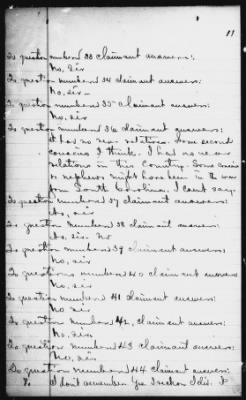 11
To question numbered 33 claimant answers:
No, sir
To question numbered 34 claimant answers:
No, sir –
To question numbered 35 claimant answers:
No, sir
To question numbered 36 claimant answers:
It has no near relatives. Some second
cousins I think. I had no near
relations in this Country. Some cousins
or nephews might have been in the war
from South Carolina. I cant say.
To question numbered 37 claimant answers:
No, sir
To question numbered 38 claimant answers:
No, sir. No
To question numbered 39 claimant answers:
No, sir
To questions numbered 40 claimant answers
No, sir
To question numbered 41 claimant answers:
No sir
To question numbered 42, claimant answers:
No, sir
To question numbered 43 claimant answers:
No, sir
To question numbered 44 claimant answers:
I don't remember. Yes I reckon I did. I